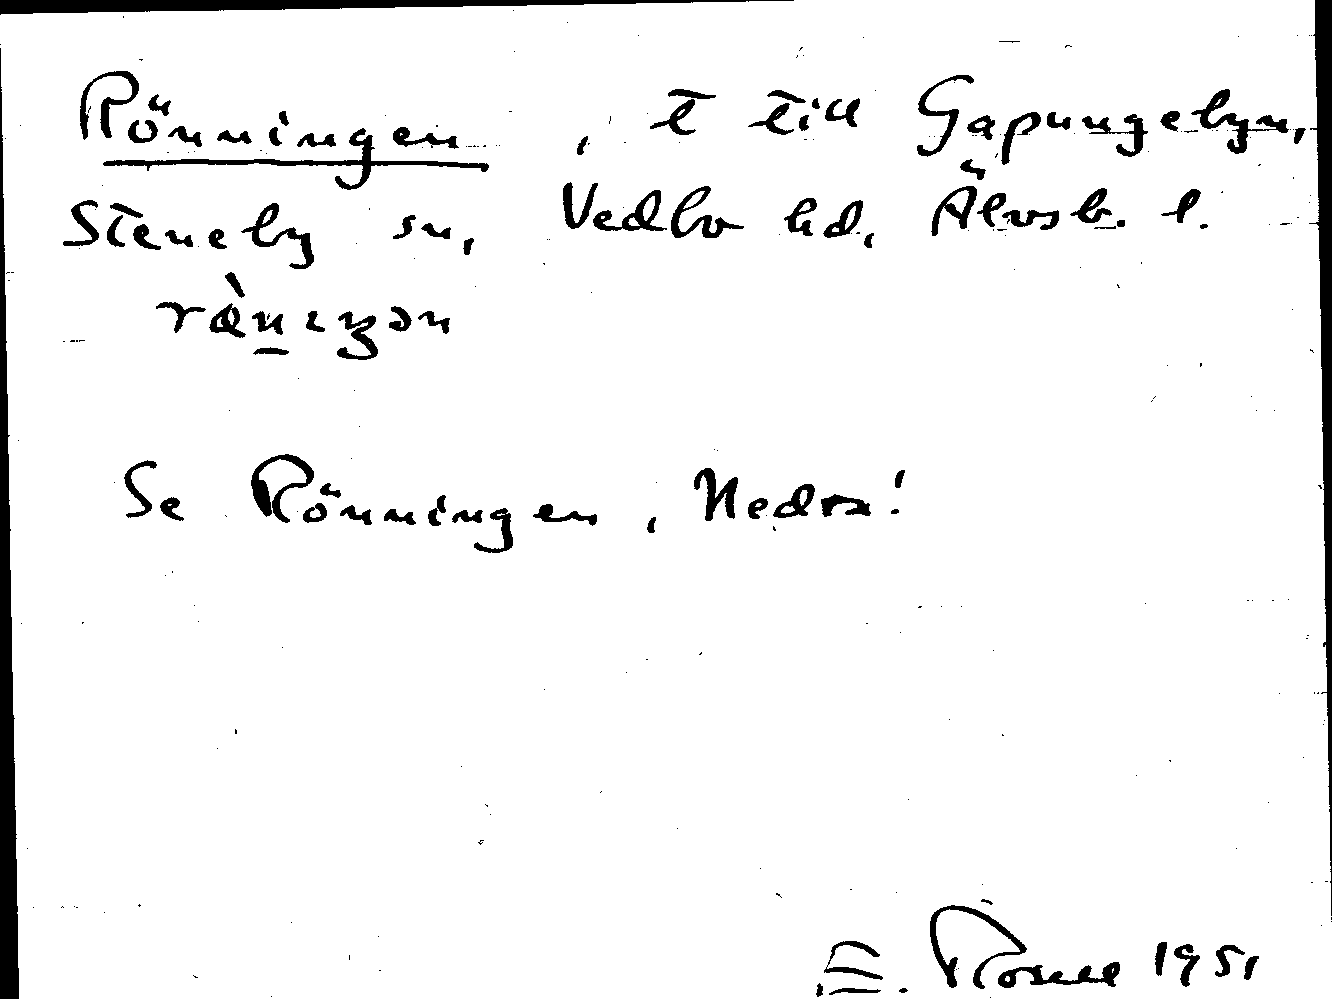 Rönningen, t till Gapungebyn,
Steneby sn, Vedbo hd, Älvsb. l.
Se Rönningen, Nedra!
E. 1951